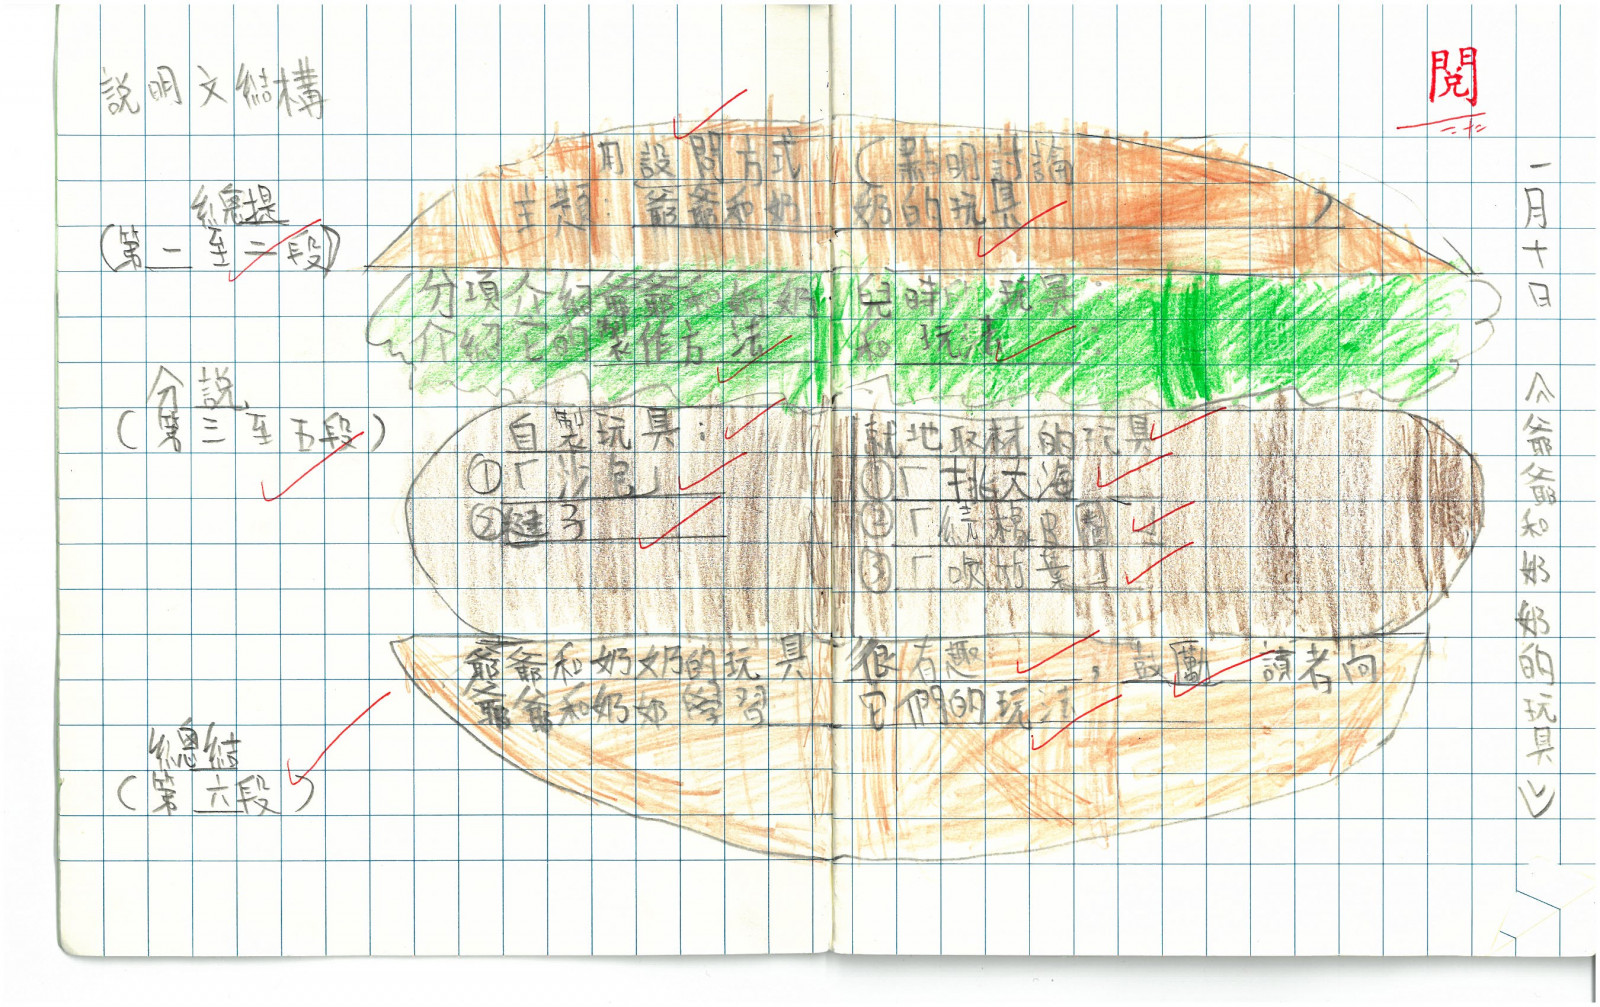 說明文結構
閱
一月十日 《爺爺和奶奶的玩具》
總提
(第一至二段)
用設問方式(點明討論
主題:爺爺和奶奶的玩具)
分項介紹爺爺和奶奶兒時玩具:
介紹它的製作方法和玩法
分說
(第三至五段)
自製玩具:
①「沙包」
②毽子
就地取材的玩具
①「挑大海」
②「繞橡皮圈」
③「吹竹葉」
爺爺和奶奶的玩具很有趣,鼓勵讀者向
爺爺和奶奶學習它們的玩法
總結
(第六段)